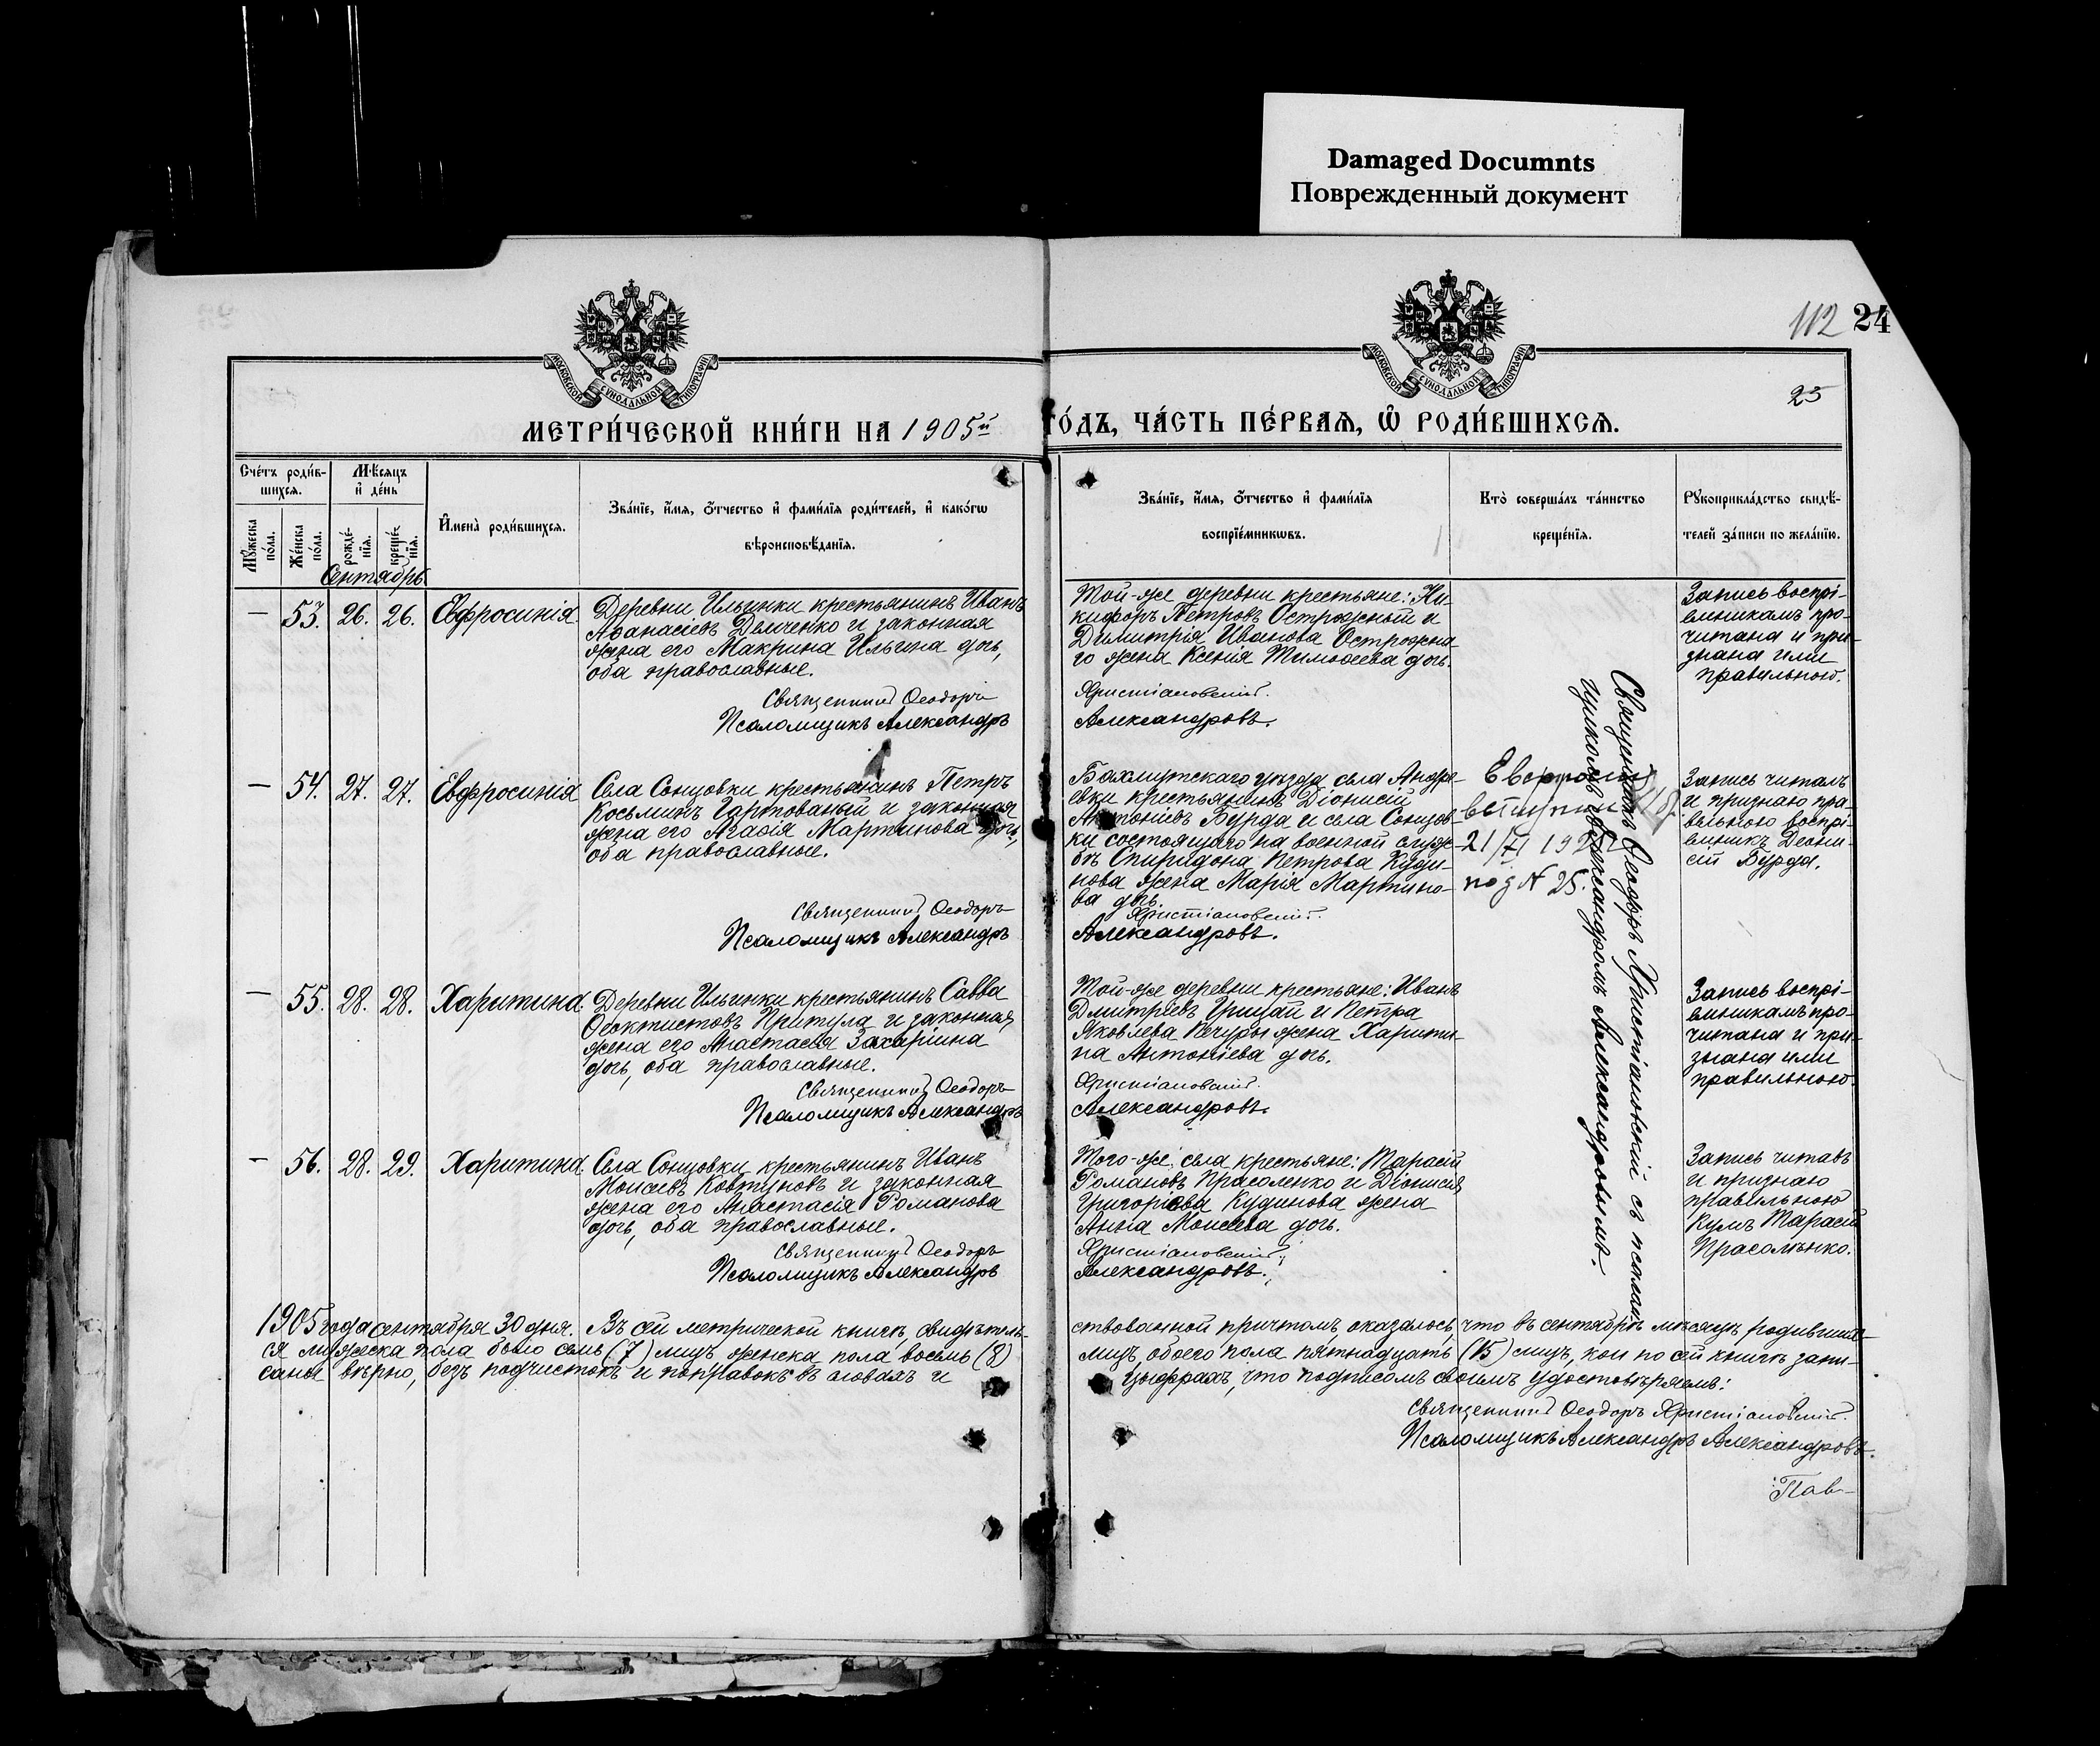 Damaged Documnts
Поврежденный документ
112 24
25
МОСКОВСКОЙ СѴНОДАЛЬНОЙ ТИПОГРАФІИ
МОСКОВСКОЙ СѴНОДАЛЬНОЙ ТИПОГРАФІИ
МЕТРИ́ЧЕСКОЙ КНИ́ГИ НА 1905й
ГО́ДЪ, ЧА́СТЬ ПЕ́РВАѦ, Ѽ РОДИ́ВШИХСѦ.
Сче́тъ роди́в-
шихсѧ.
Мѣ́сѧцъ
и҆ де́нь
Мꙋ́жеска
по́ла.
Же́нска
по́ла.
рожде́-
нїѧ.
креще́-
нїѧ.
И҆мена̀ роди́вшихсѧ.
Зва́нїе, и҆́мѧ, ѻ҆́тчество и҆ фами́лїѧ роди́телей, и҆ како́гѡ
вѣроисповѣ́данїѧ.
Зва́нїе, и҆́мѧ, ѻ҆́тчество и҆ фами́лїѧ
воспрїе́мникѡвъ.
Кто̀ соверша́лъ та́инство
креще́нїѧ.
Рꙋкоприкла́дство свидѣ́-
телей за́писи по жела́нїю.
Сентябрь
— 53. 26. 26. Евфросинія.
Деревни Ильинки крестьянинъ Иванъ
Аѳанасіевъ Демченко и законная
жена его Макрина Ильина дочь,
оба православные.
Священникъ Ѳеодоръ
Псаломщикъ Александръ
Той-же деревни крестьяне: Ни-
кифоръ Петровъ Острожный и
Димитрія Иванова Острожна-
го жена Ксенія Тимоѳеева дочь.
Христіановскій.
Александровъ.
Запись воспрі-
емникамъ про-
читана и при-
знана ими
правильною.
— 54. 27. 27. Евфросинія
Села Сонцовки крестьянинъ Петръ
Косьминъ Гартованый и законная
жена его Агаѳія Мартинова дочь,
оба православные.
Священникъ Ѳеодоръ
Псаломщикъ Александръ
Бахмутскаго уѣзда села Андре-
евки крестьянинъ Діонисій
Антоніевъ Бурда и села Сонцов-
ки состоящаго на военной служ-
бѣ Спиридона Петрова Куди-
нова жена Марія Мартино-
ва дочь.
Христіановскій.
Александровъ.
21/VI
под № 25.
Запись читалъ
и признаю пра-
вильною воспрі-
емникъ Деони-
сій Бурда.
Священникъ Ѳеодоръ Христіановскій съ псалом-
щикомъ Александромъ Александровымъ.
— 55. 28. 28. Харитина.
Деревни Ильинки крестьянинъ Савва
Ѳеоктистовъ Притула и законная
жена его Анастасія Захаріина
дочь, оба православные.
Священникъ Ѳеодоръ
Псаломщикъ Александръ
Той-же деревни крестьяне: Иванъ
Дмитріевъ Грицай и Петра
Яковлева Печуры жена Харити-
на Антоніева дочь.
Христіановскій.
Александровъ.
Запись воспрі-
емникамъ про-
читана и при-
знана ими
правильною.
— 56. 28. 29. Харитина.
Села Сонцовки крестьянинъ Иванъ
Моисеевъ Ковтуновъ и законная
жена его Анастасія Романова
дочь, оба православные.
Священникъ Ѳеодоръ
Псаломщикъ Александръ
Того-же села крестьяне: Тарасій
Романовъ Прасоленко и Діонисія
Григоріева Кудинова жена
Анна Моисеева дочь.
Христіановскій.
Александровъ.
Запись читавъ
и признаю
правильною
Кумъ Тарасій
Прасоленко.
1905 года сентября 30 дня. Въ сей метрической книгѣ, свидѣтель-
ствованной причтомъ, оказалось, что въ сентябрѣ мѣсяцѣ родивших-
ся мужеска пола было семь (7) лицъ женска пола восемь (8)
лицъ, обоего пола пятнадцать (15) лицъ, кои по сей книгѣ запи-
саны вѣрно, безъ подчистокъ и поправокъ въ словахъ и
цыфрахъ, что подписомъ своимъ удостовѣряемъ:
Священникъ Ѳеодоръ Христіановскій.
Псаломщикъ Александръ Александровъ.
Пав-